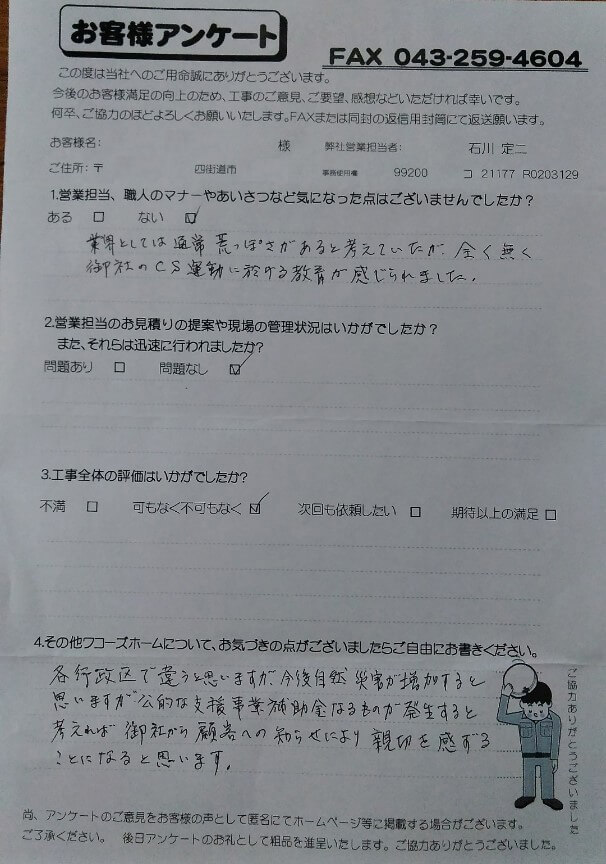 お客様アンケート
FAX 043-259-4604
この度は当社へのご用命誠にありがとうございます。
今後のお客様満足の向上のため、工事のご意見、ご要望、感想などいただければ幸いです。
何卒、ご協力のほどよろしくお願いいたします。FAXまたは同封の返信用封筒にて返送願います。
お客様名: 様 弊社営業担当者: 石川 定二
ご住所:〒 四街道市 事務使用欄 99200 コ 21177 R0203129
1.営業担当、職人のマナーやあいさつなど気になった点はございませんでしたか?
ある □ ない ☑
業界としては通常荒っぽさがあると考えていたが、全く無く
御社のCS運動に於ける教育が感じられました。
2.営業担当のお見積りの提案や現場の管理状況はいかがでしたか?
また、それらは迅速に行われましたか?
問題あり □ 問題なし ☑
3.工事全体の評価はいかがでしたか?
不満 □ 可もなく不可もなく ☑ 次回も依頼したい □ 期待以上の満足 □
4.その他ワコーズホームについて、お気づきの点がございましたらご自由にお書きください。
各行政区で違うと思いますが、今後自然災害が増加すると
思いますが公的な支援事業補助金なるものが発生すると
考えれば御社から顧客への知らせにより親切を感ずる
ことになると思います。
ご協力ありがとうございました
尚、アンケートのご意見をお客様の声として匿名にてホームページ等に掲載する場合がございます。
ご了承ください。 後日アンケートのお礼として粗品を進呈いたします。ご協力ありがとうございました。